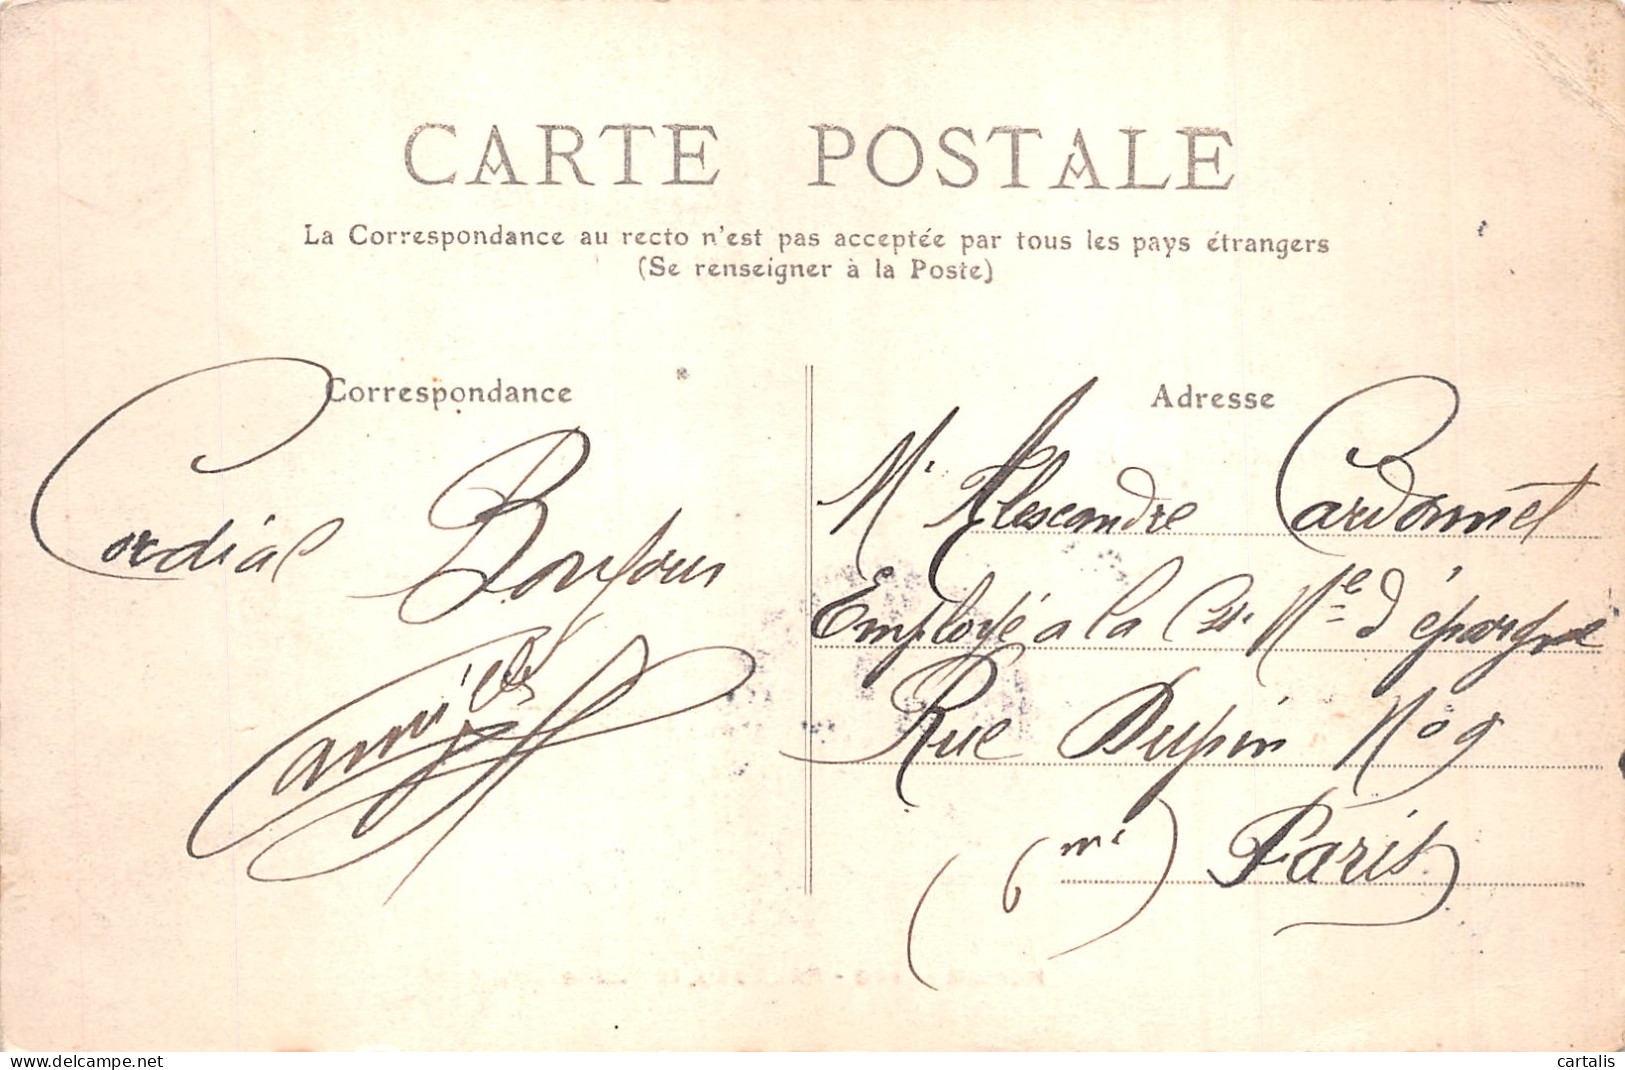 CARTE POSTALE
La Correspondance au recto n'est pas acceptée par tous les pays étrangers
(Se renseigner à la Poste)
Correspondance
Cordial Bonjour
Adresse
Mr Alexandre Cardonnet
Employé a la Nle d'épargne
Rue Dupin No 9
(6me) Paris
www.delcampe.net
cartalis